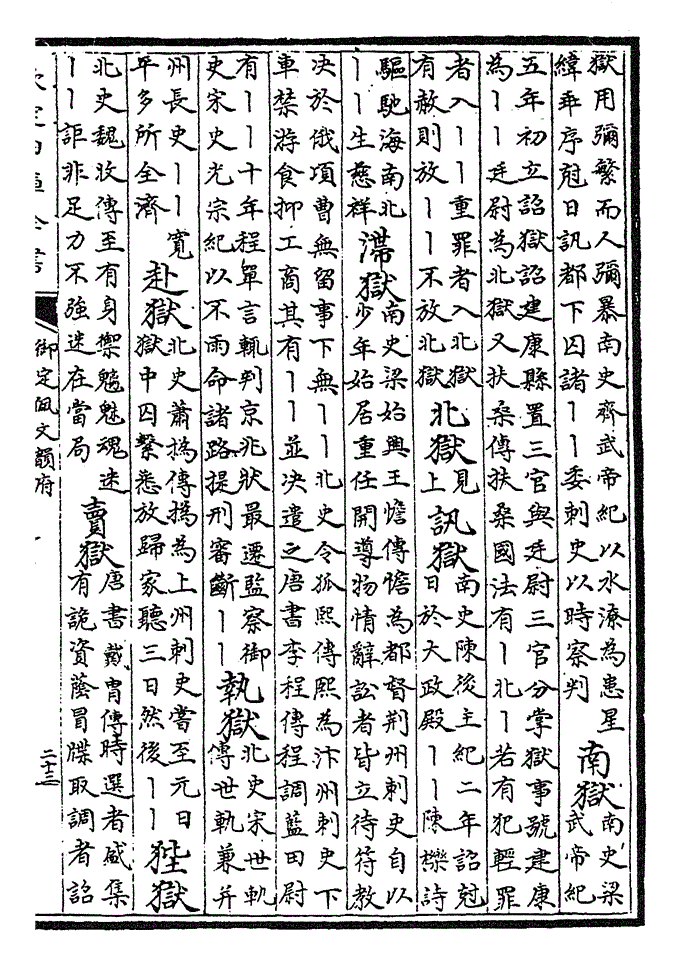 獄用彌繁而人彌暴南史齊武帝紀以水潦為患星
緯乖序尅日訊都下囚諸丨丨委刺史以時察判
南獄
南史梁
武帝紀
五年初立詔獄詔建康縣置三官與廷尉三官分掌獄事號建康
為丨丨廷尉為北獄又扶桑傳扶桑國法有丨北丨若有犯輕罪
者入丨丨重罪者入北獄
有赦則放丨丨不放北獄
北獄
見
上
訊獄
南史陳後主紀二年詔尅
日於大政殿丨丨陳櫟詩
驅馳海南北
丨丨生慈祥
滯獄
南史梁始興王憺傳憺為都督荆州刺史自以
少年始居重任開導物情辭訟者皆立待符教
决於俄頃曹無留事下無丨丨北史令狐熙傳熙為汴州刺史下
車禁游食抑工商其有丨丨並决遣之唐書李程傳程調藍田尉
有丨丨十年程單言輒判京兆狀最遷監察御
史宋史光宗紀以不雨命諸路提刑審斷丨丨
執獄
北史宋世軌
傳世軌兼并
州長史丨丨寬
平多所全濟
赴獄
北史蕭撝傳撝為上州刺史嘗至元日
獄中囚繫悉放歸家聽三日然後丨丨
狴獄
北史魏收傳至有身禦魑魅魂迷
丨丨詎非足力不強迷在當局
賣獄
唐書戴胄傳時選者盛集
有詭資蔭冒牒取調者詔
御定佩文韻府
二十三